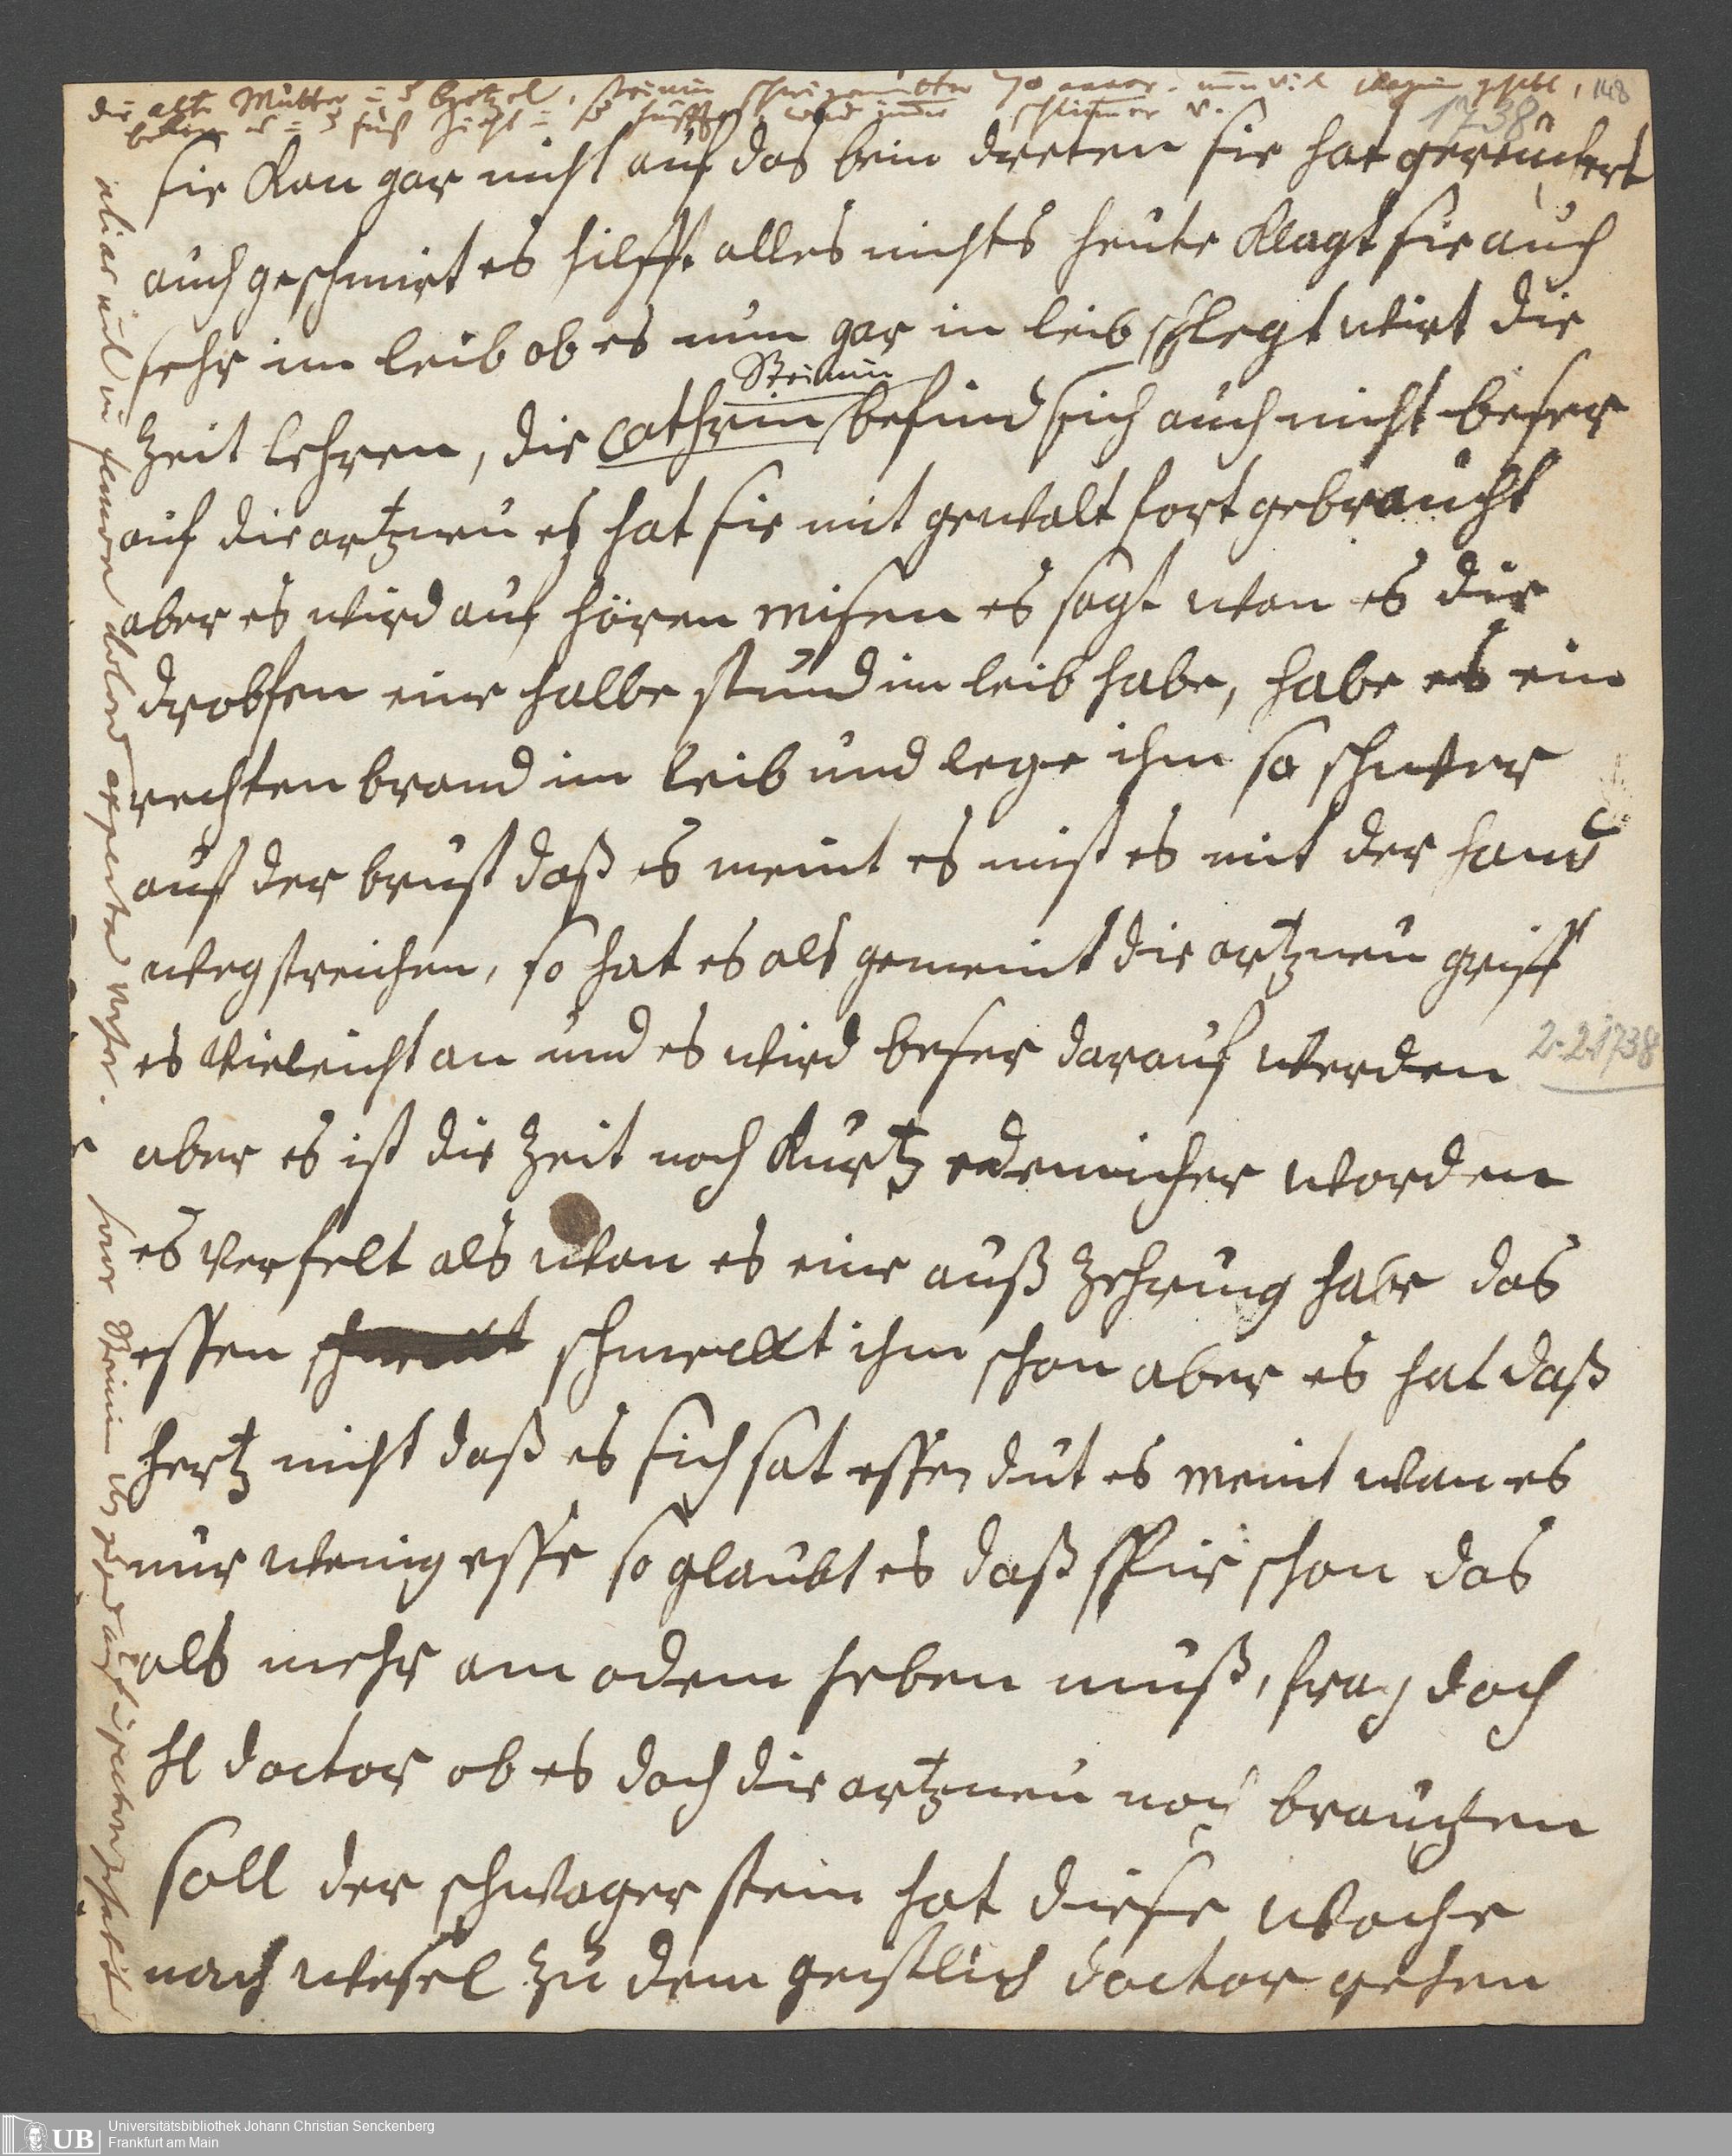 die alte Mutter
148
1738
sie kan gar nicht auf das bein dreten sie hat gereuchert
auch geschmirt es hilfft alles nichts heute klagt sie auch
sehr im leib ob es nun gar in leib schlegt wirt die
Steinin
zeit lehren, die Cathrin befind sich auch nicht beser
auf die artzneu es hat sie mit gewalt fort gebraucht
aber es wird auf hören misen es sagt wan es die
drobfen eine halbe stund im leib habe, habe es ein
rechten brand im leib und lege ihm so schwer
auf der brust daß es meint es mist es mit der hand
weg streichen, so hat es als gemeint die artzneu greiff
es vieleicht an und es wird beser darauf werden
2.2.1738
aber es ist die zeit noch kurtz worden
es verfelt als wan es eine auß zehrung habe das
essen schmeckt ihm schon aber es hat daß
hertz nicht daß es sich sat essen dut es meint wan es
nur wenig esse so glaubt es daß schon das
als mehr am odem heben muß, frag doch
H doctor ob es doch die artzneu noch brauchen
soll der schwager stein hat diese woche
nach wesel zu dem geistlich doctor gehen
UB
Universitätsbibliothek Johann Christian Senckenberg
Frankfurt am Main